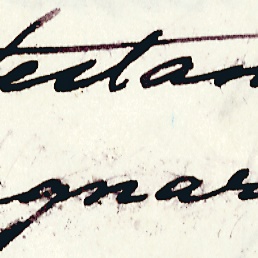 testan
gnar